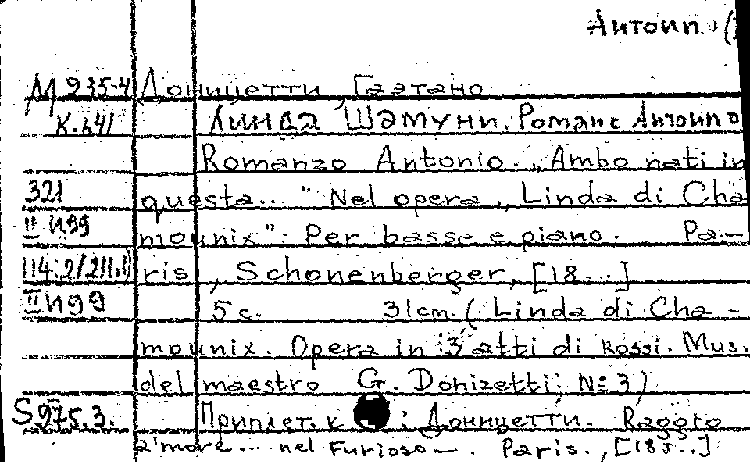 Антонио (
М 935-4 Доницетти, Гаэтано
К.641 Линда Шамуни. Романс Антонио
Romanzo Antonio. „Ambo nati in
321 questa..." Nel opera „Linda di Cha
II И99 mounix". Per basse e piano. Pa-
114.2/211.1 ris, Schonenberger, [18...]
II И99 5 с. 31 cm. (Linda di Cha-
mounix. Opera in 3 atti di Rossi. Mus.
del maestro G. Donizetti; №3)
S 975.3. Приплет. к : Доницетти. Raggio
a'more... nel Furioso —. Paris., [185..]